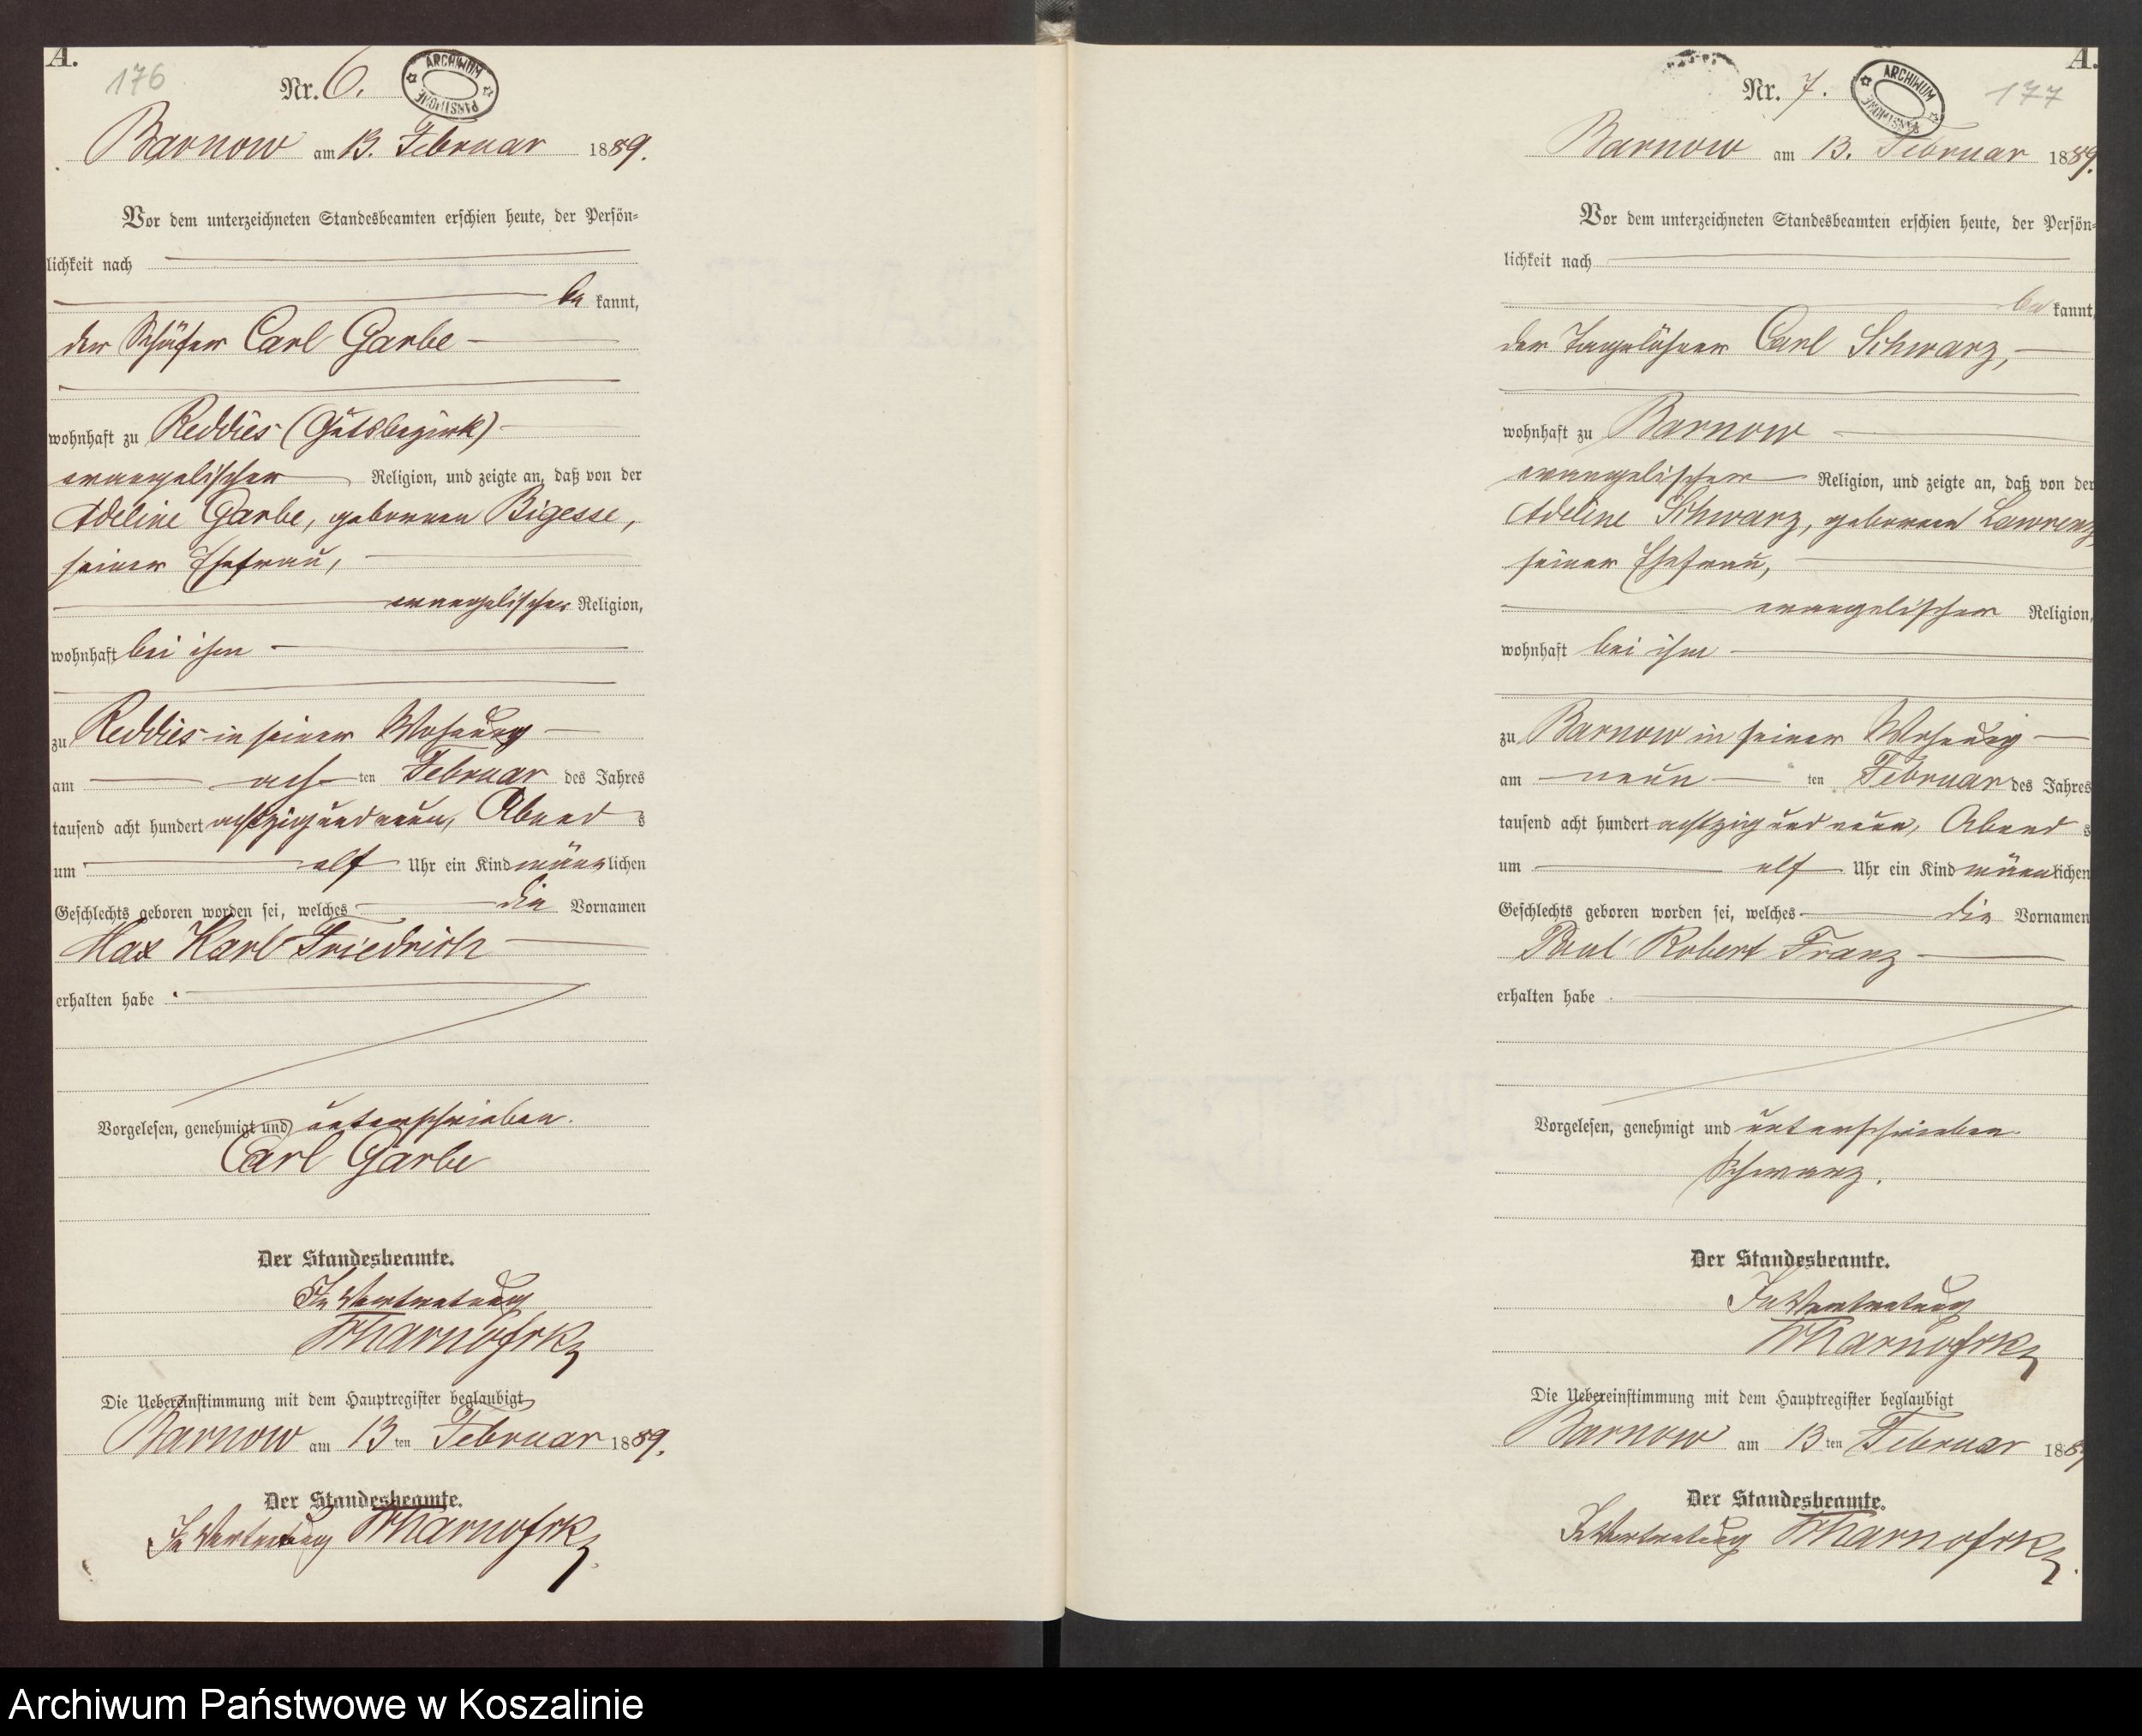 A.
176
Nr. 6.
ARCHIWUM PAŃSTWOWE
Barnow am 13. Februar 1889.
Vor dem unterzeichneten Standesbeamten erschien heute, der Persön-
lichkeit nach
be kannt,
der Schäfer Carl Garbe
wohnhaft zu Reddies (Gutsbezirk)
evangelischer Religion, und zeigte an, daß von der
Adeline Garbe, geborenen Bigesse,
seiner Ehefrau,
evangelischer Religion,
wohnhaft bei ihm
zu Reddies in seiner Wohnung
am ach ten Februar des Jahres
tausend acht hundert achtzig und neun, Abend s
um elf Uhr ein Kind männ lichen
Geschlechts geboren worden sei, welches die Vornamen
Max Karl Friedrich
erhalten habe.
Vorgelesen, genehmigt und unterschrieben.
Carl Garbe
Der Standesbeamte.
In Vertretung
Die Uebereinstimmung mit dem Hauptregister beglaubigt
Barnow am 13 ten Februar 1889.
Der Standesbeamte.
In Vertretung
A.
177
Nr. 7.
ARCHIWUM PAŃSTWOWE
Barnow am 13. Februar 1889.
Vor dem unterzeichneten Standesbeamten erschien heute, der Persön-
lichkeit nach
be kannt,
der Tagelöhner Carl Schwarz,
wohnhaft zu Barnow
evangelischer Religion, und zeigte an, daß von der
Adeline Schwarz, geborenen Lawrenz,
seiner Ehefrau,
evangelischer Religion,
wohnhaft bei ihm
zu Barnow in seiner Wohnung
am neun ten Februar des Jahres
tausend acht hundert achtzig und neun, Abend s
um elf Uhr ein Kind männ lichen
Geschlechts geboren worden sei, welches die Vornamen
Paul Robert Franz
erhalten habe.
Vorgelesen, genehmigt und unterschrieben
Schwarz.
Der Standesbeamte.
In Vertretung
Die Uebereinstimmung mit dem Hauptregister beglaubigt
Barnow am 13 ten Februar 1889
Der Standesbeamte.
In Vertretung
Archiwum Państwowe w Koszalinie